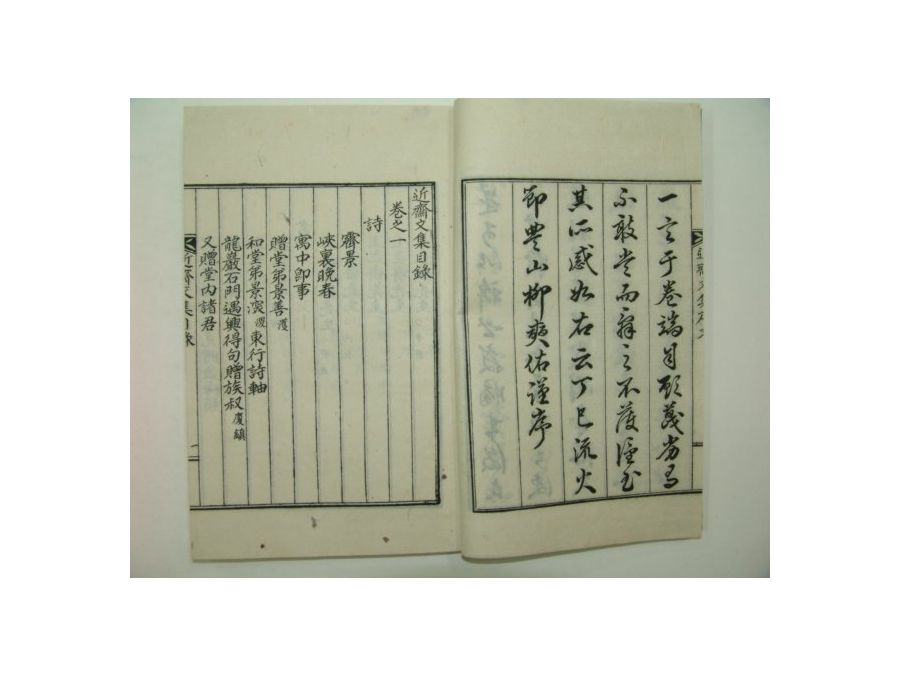 一言于卷端自顧蔑劣有
不敢當而辭之不獲謹書
其所感如右云丁巳流火
節豊山柳奭佑謹序
近齋文集目錄
卷之一
詩
霽景
峽裏晩春
寓中卽事
贈堂弟景善濩
和堂弟景深澱東行詩軸
龍巖石門遇興得句贈族叔厦鎭
又贈堂內諸君
近齋文集目錄 一